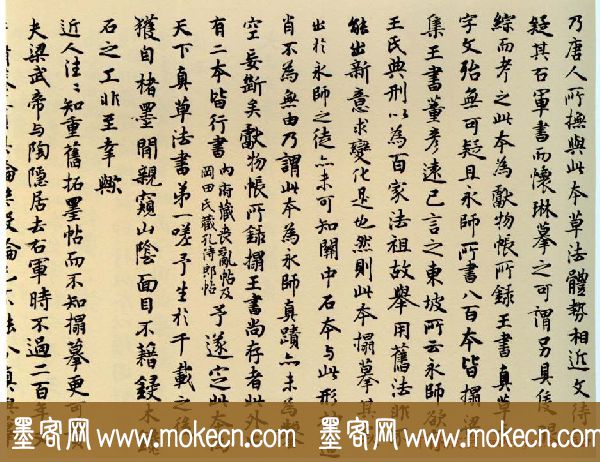 乃唐人所撫與此本草法體勢相近文待
疑其右軍書而懷琳摹之可謂另具後
綜而考之此本為獻物帳所錄王書真草
字文殆無可疑且永師所書八百本皆搨
集王書董彥遠已言之東坡所云永師欲
王氏典刑以為百家法祖故舉用舊法非
能出新意求變化是也然則此本搨摹其
出於永師之徒亦未可知關中石本與此形
肖不為無由乃謂此本為永師真蹟亦未為
空妄斷矣獻物帳所錄搨王書尚存者此外
有二本皆行書
內府藏喪亂帖及
岡田氏藏孔侍郎帖
予遂定此本為
天下真草法書第一嗟予生於千載之後
獲自楮墨間親窺山陰面目不藉錽木
石之工非至幸歟
近人注〻知重舊拓墨帖而不知搨摹更可
夫梁武帝與陶隱居去右軍時不過二百年
墨客网 www.mokecn.com
墨客网 www.mokecn.com